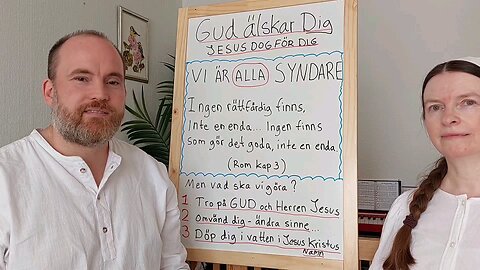 Gud älskar Dig
JESUS DOG FÖR DIG
VI ÄR ALLA SYNDARE
Ingen rättfärdig finns,
Inte en enda... Ingen finns
som gör det goda, inte en enda.
(Rom kap 3)
Men vad ska vi göra?
1 Tro på GUD och Herren Jesus
2 omvänd dig - ändra sinne...
3 Döp dig i vatten i Jesus Kristus
Namn